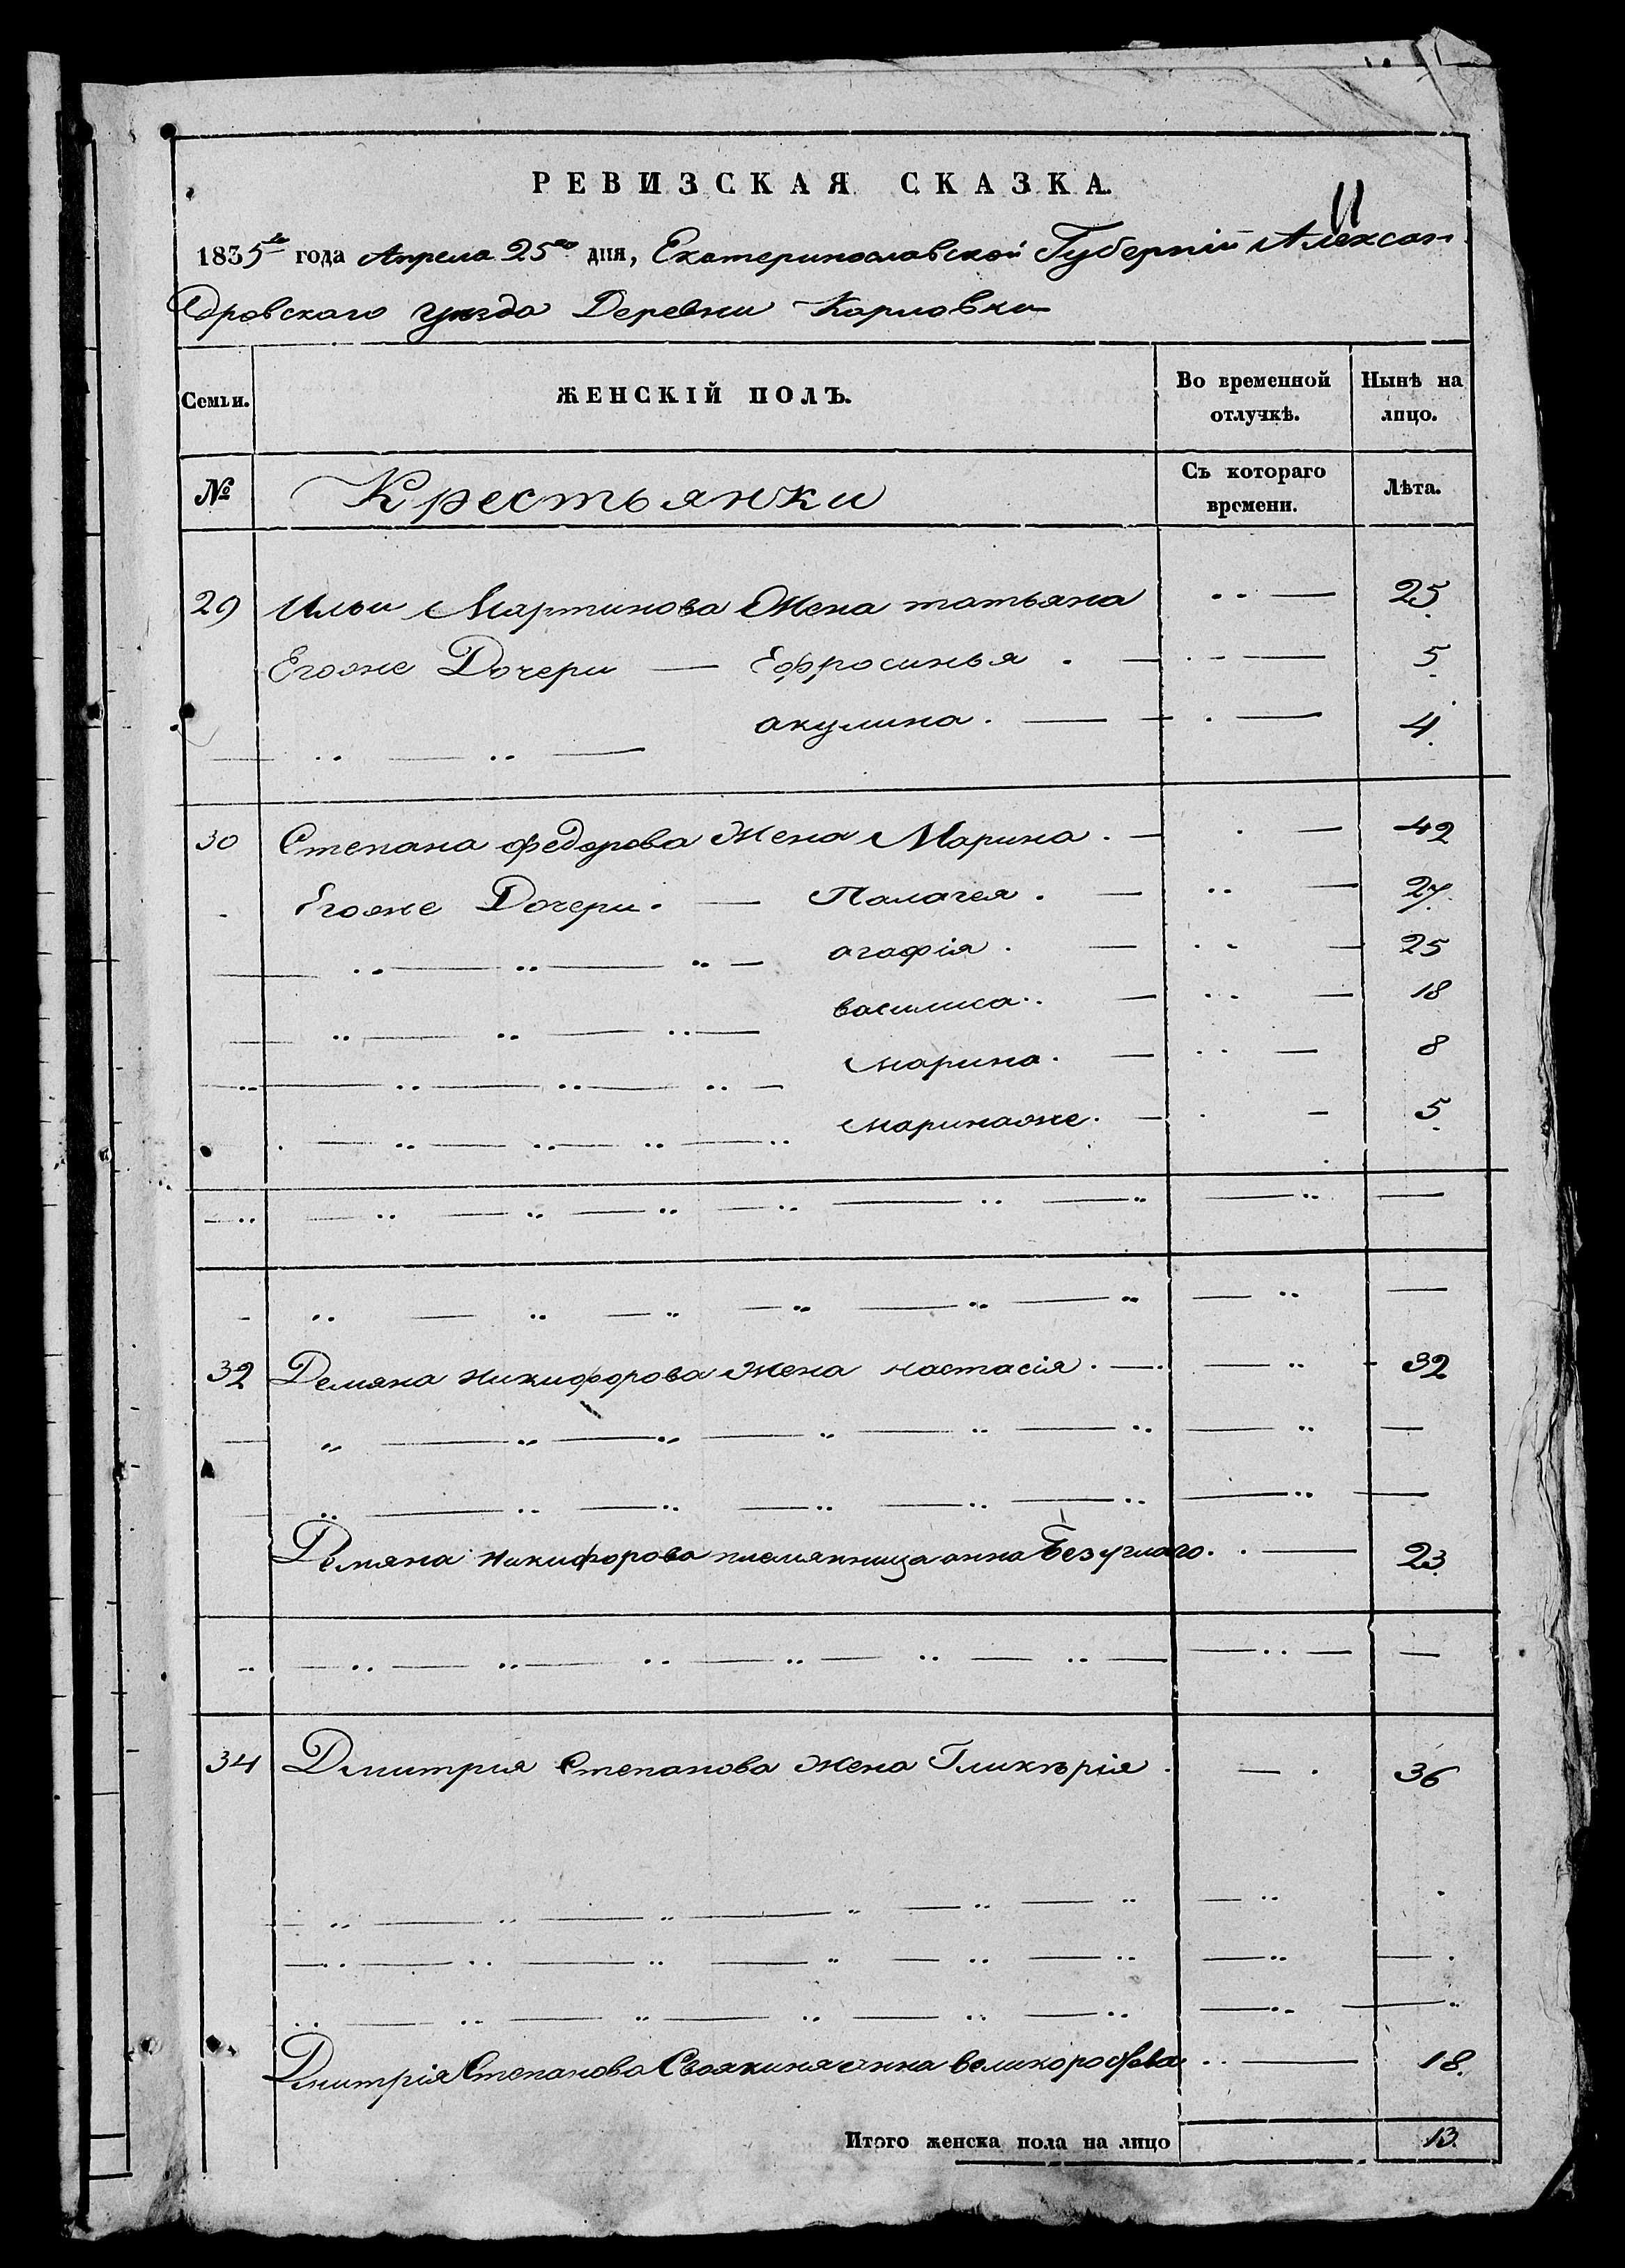 РЕВИЗСКАЯ СКАЗКА.
11
1835го года Апреля 25го дня, Екатеринославской Губерніи Алексан-
дровскаго уезда Деревни Карловки
Семьи. ЖЕНСКІЙ ПОЛЪ. Во временной отлучкѣ. Нынѣ на лицо.
№ Крестьянки Съ котораго времени. Лѣта.
29 Ильи Мартинова Жена татьяна 25
Егоже Дочери Ефросинья 5
акулина 4
30 Степана федорова Жена Марина 42
Егоже Дочери Палагея 27
агафія 25
василиса 18
марина 8
маринаже 5
32 Демяна никифорова жена настасія 32
Демяна никифорова племянница анна Безуглаго 23
34 Дмитрия Степанова жена Гликерія 36
Дмитрія Степанова Своякиня анна 18
Итого женска пола на лицо 13